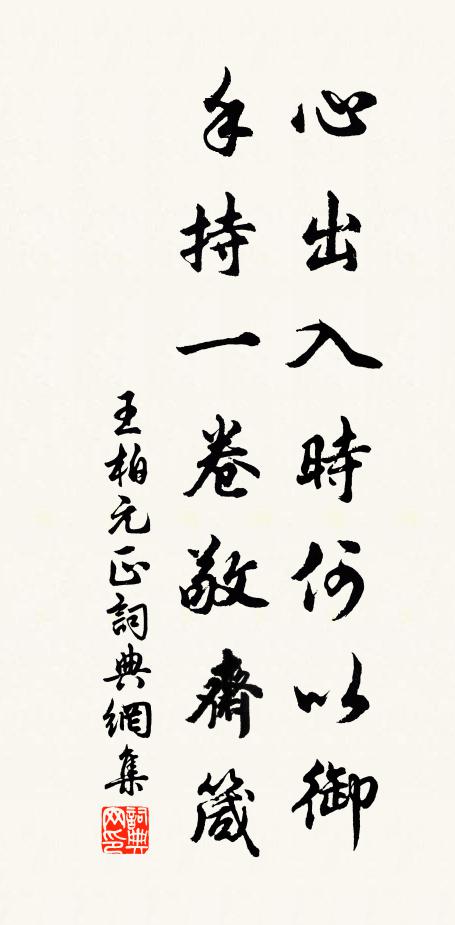 心出入時何以御
手持一卷敬齋箴
王柏元正詞典網集
詞典网印